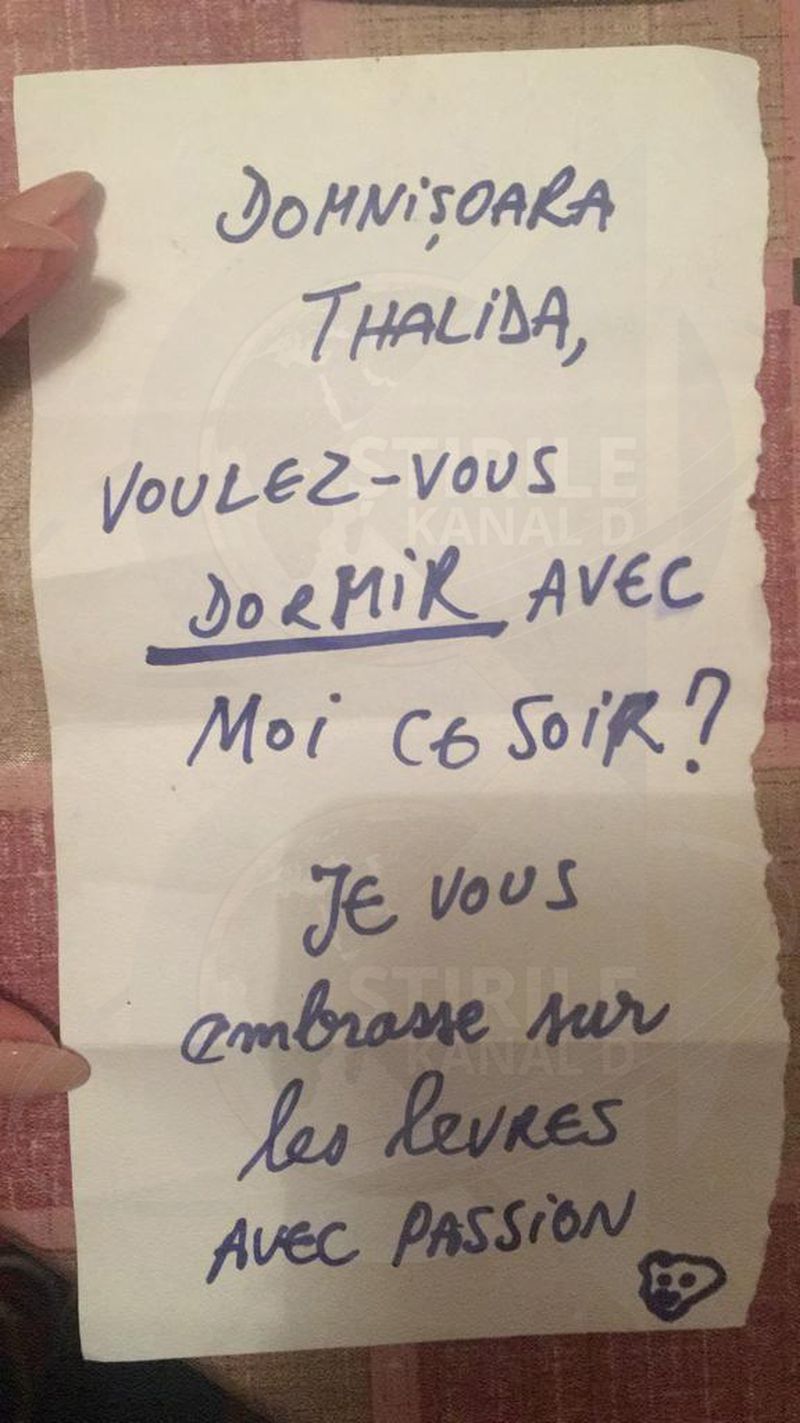 DOMNiȘOARA
THALiDA,
VOULEZ-VOUS
DORMiR AVEC
Moi CE SOiR?
JE VOUS
embrasse sur
les levRES
AVEC PASSiON
STIRILE
KANAL D
STIRILE
KANAL D